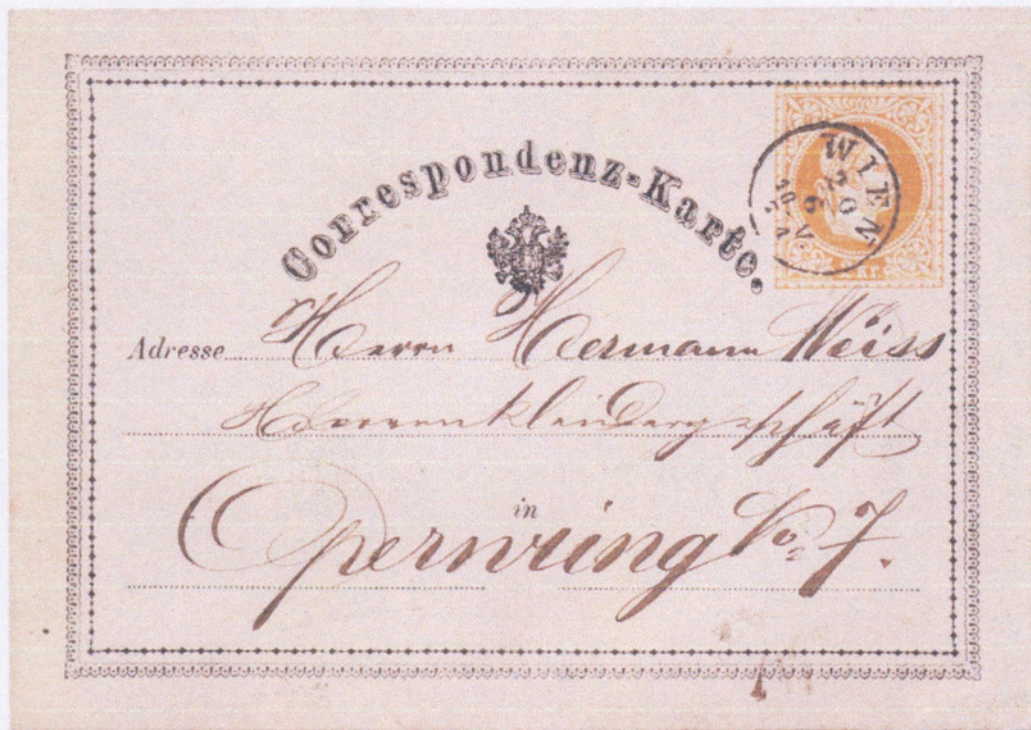 Correspondenz-Karte.
WIEN
2 KR.
Adresse Herrn Hermann Weiss
Herrenkleidergeschäft
in
Opernring No 7.